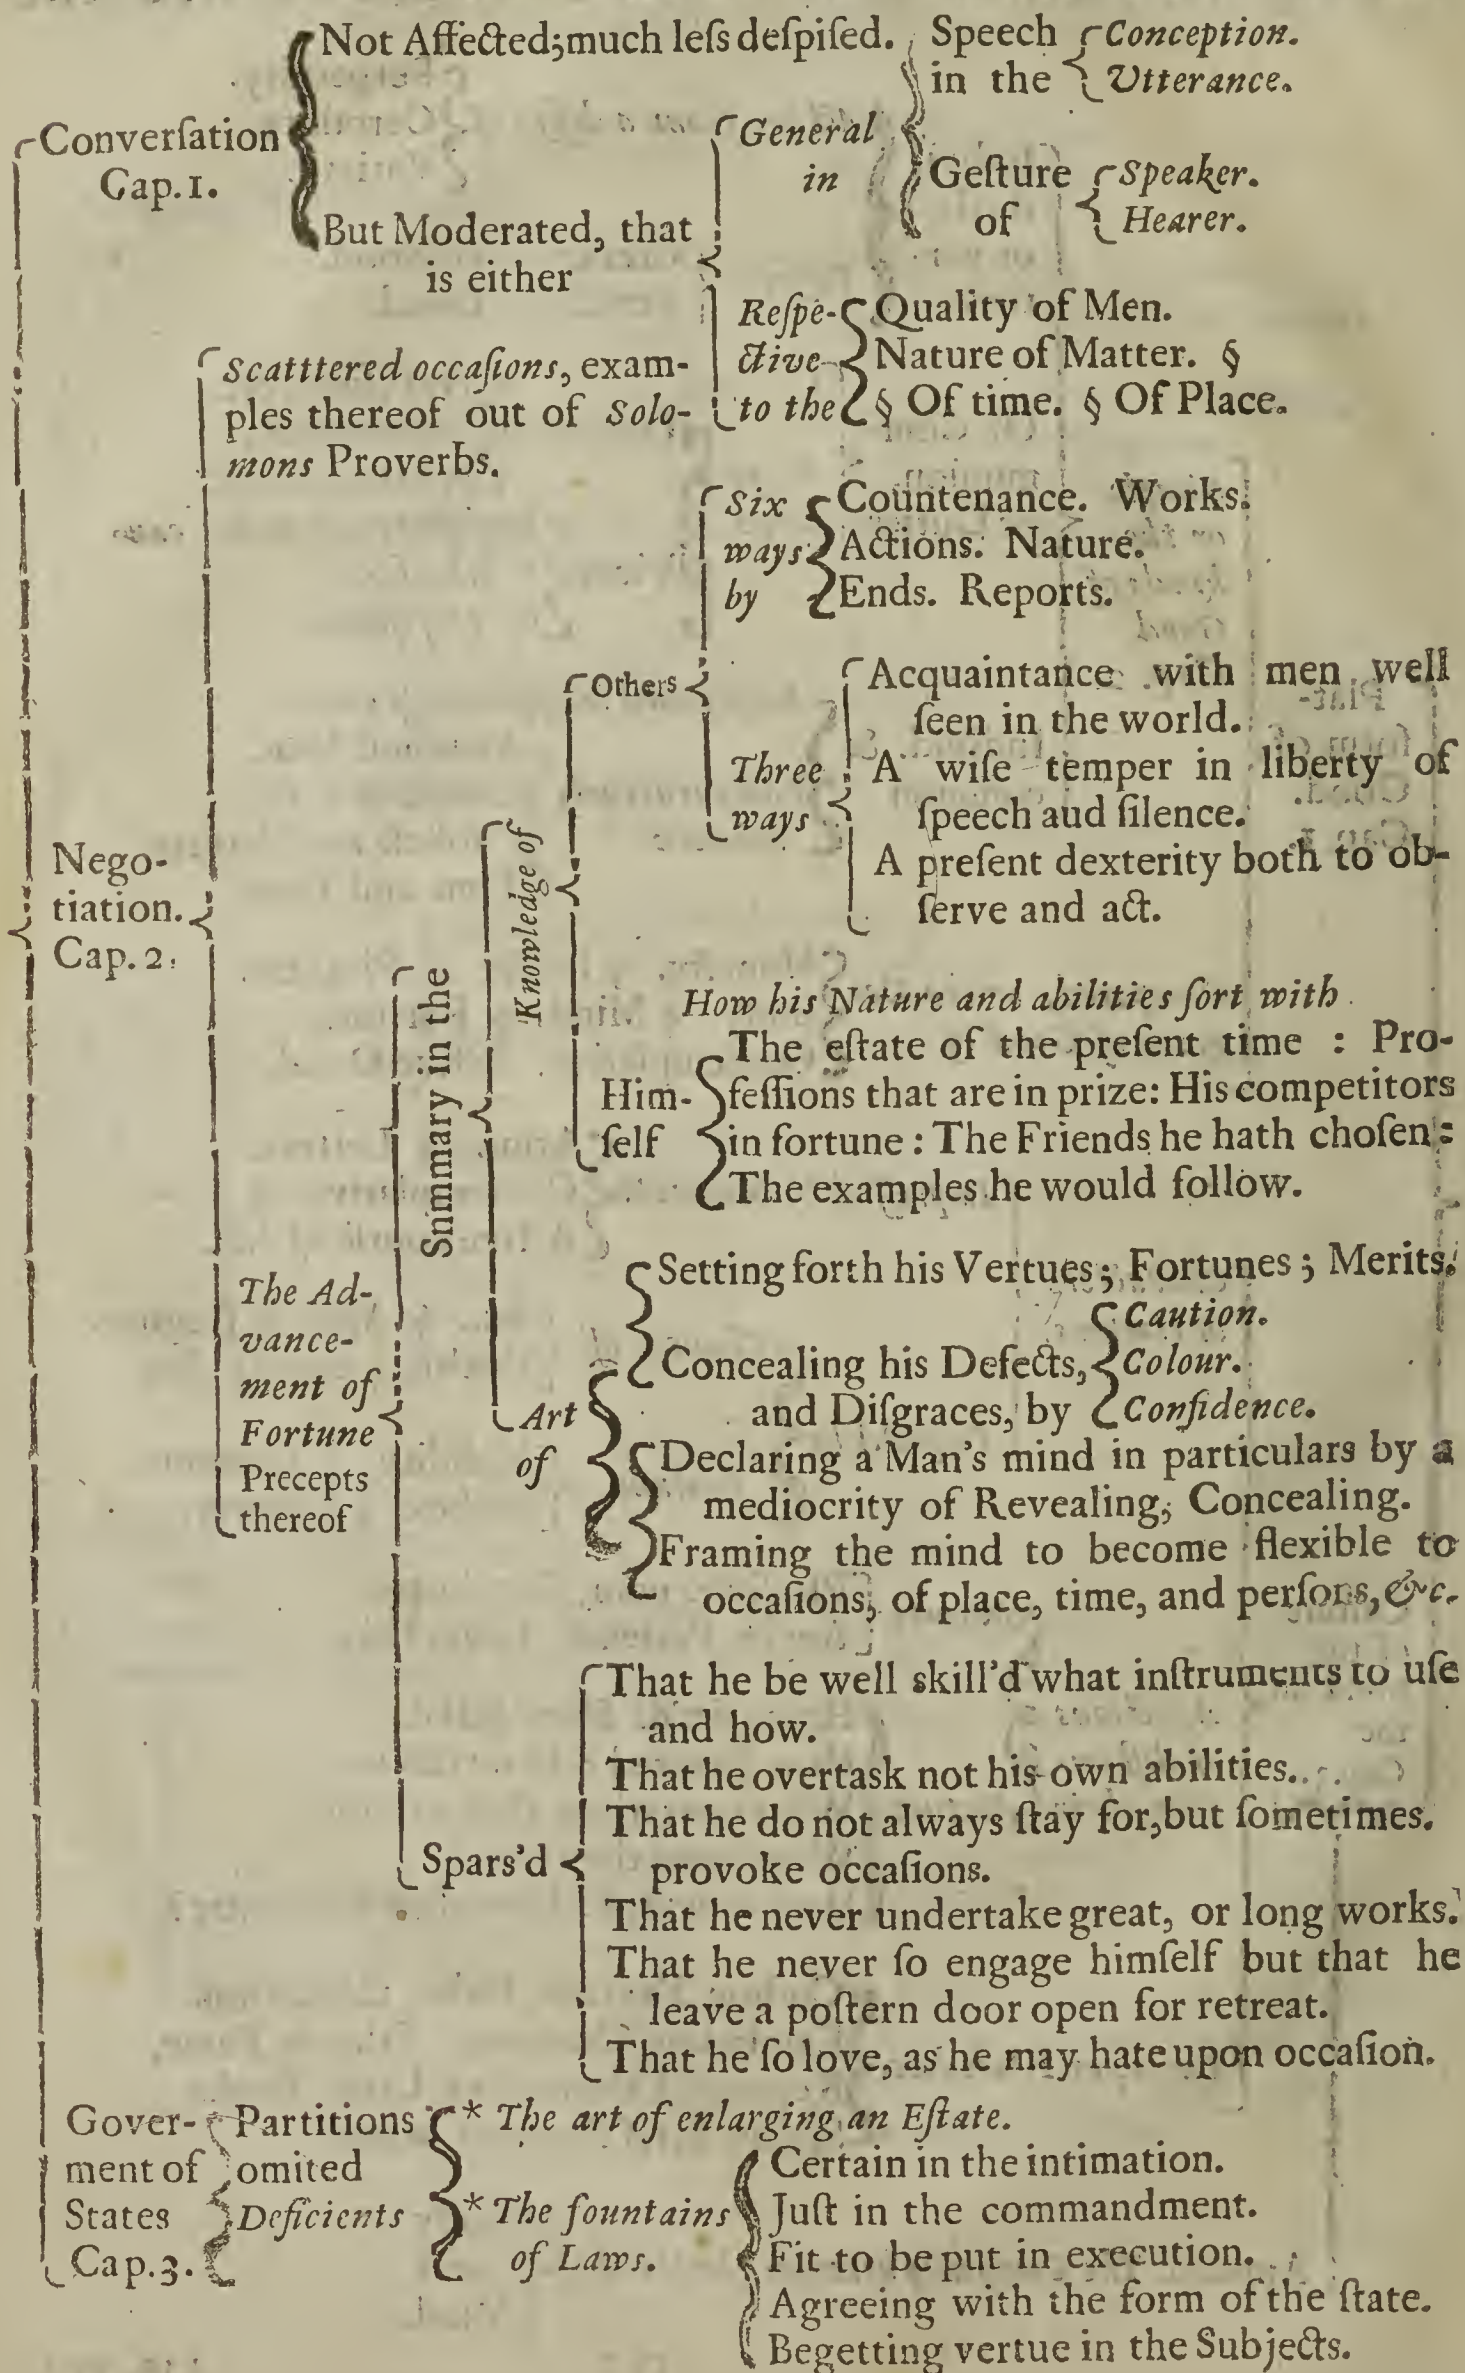 Converſation
Cap. 1.
Not Affected; much leſs deſpiſed.
But Moderated, that
is either
General
in
Speech
in the
Conception.
Utterance.
Geſture
of
Speaker.
Hearer.
Reſpe-
ctive
to the
Quality of Men.
Nature of Matter. §
§ Of time. § Of Place.
Nego-
tiation.
Cap. 2.
Scatttered occaſions, exam-
ples thereof out of Solo-
mons Proverbs.
The Ad-
vance-
ment of
Fortune
Precepts
thereof
Snmmary in the
Knowledge of
Others
Six
ways
by
Countenance. Works.
Actions. Nature.
Ends. Reports.
Three
ways
Acquaintance with men well
ſeen in the world.
A wiſe temper in liberty of
ſpeech aud ſilence.
A preſent dexterity both to ob-
ſerve and act.
Him-
ſelf
How his Nature and abilities ſort with
The eſtate of the preſent time : Pro-
feſſions that are in prize: His competitors
in fortune : The Friends he hath choſen :
The examples he would follow.
Art
of
Setting forth his Vertues; Fortunes; Merits.
Concealing his Defects,
and Diſgraces, by
Caution.
Colour.
Confidence.
Declaring a Man's mind in particulars by a
mediocrity of Revealing, Concealing.
Framing the mind to become flexible to
occaſions, of place, time, and perſons, &c.
Spars'd
That he be well skill'd what inſtruments to uſe
and how.
That he overtask not his own abilities.
That he do not always ſtay for, but ſometimes.
provoke occaſions.
That he never undertake great, or long works.
That he never ſo engage himſelf but that he
leave a poſtern door open for retreat.
That he ſo love, as he may hate upon occaſion.
Gover-
ment of
States
Cap. 3.
Partitions
omited
Deficients
* The art of enlarging an Eſtate.
* The fountains
of Laws.
Certain in the intimation.
Juſt in the commandment.
Fit to be put in execution.
Agreeing with the form of the ſtate.
Begetting vertue in the Subjects.